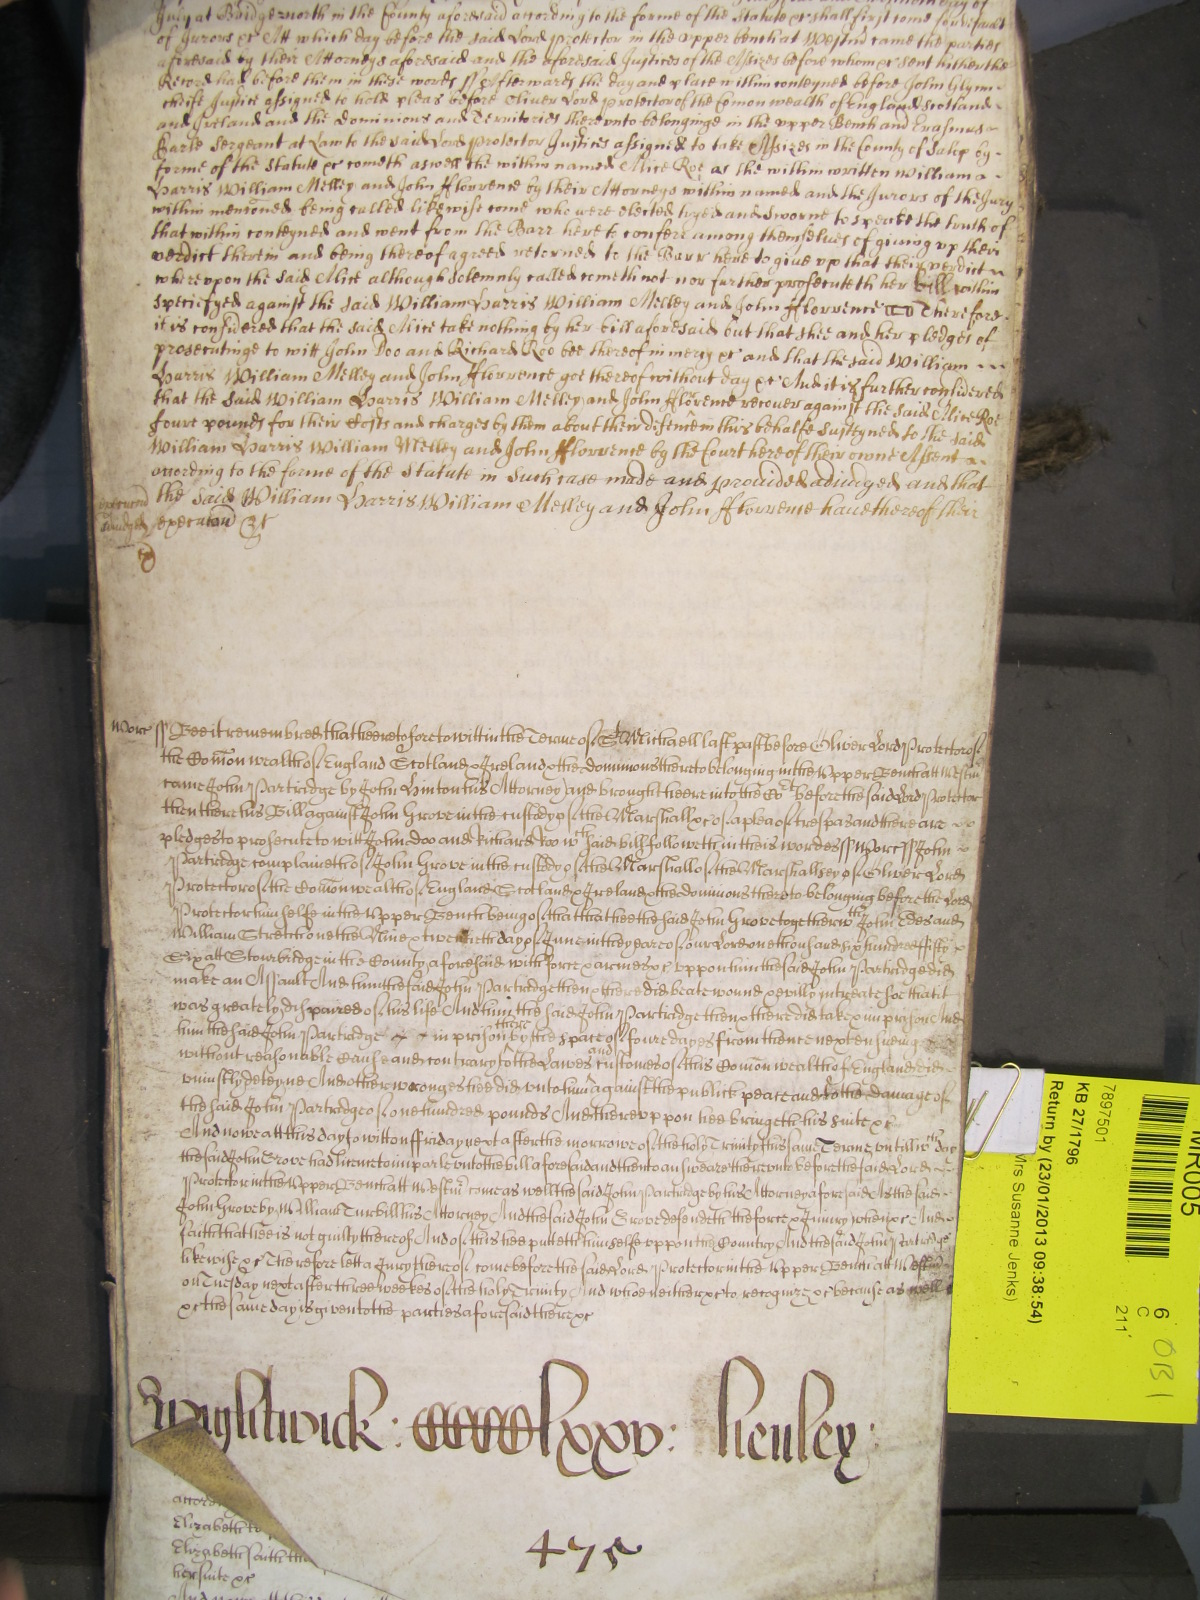 July at Bridgenorth in the County aforesaid according to the forme of the Statute &c shall first come fower part
of Jurors &c Att which day before the said Lord protector in the upper bench at Westm̃ came the parties
aforesaid by their Attorneys aforesaid and the aforesaid Justices of the Assizes before whom &c sent hither the
Record had before them in these words ss Afterwards the day and place within conteyned before John Glynn
cheife Justice assigned to hold pleas before Oliver Lord protector of the Com̃on wealth of England Scotland
and Ireland and the Dominions and Territories thereunto belonginge in the upper Bench and Erasmus
Earle Sergeant at Law to the said Lord protector Justices assigned to take Assizes in the County of Salop by
forme of the Statute &c cometh aswell the within named Alice Roe as the within written William
Harris William Melley and John fflorrence by their Attorneys within named and the Jurors of the Jury
within menc̃oned being called likewise come who were elected tryed and sworne to speake the truth of
that within conteyned and went from the Barr here to confere among themselves of giving up their
verdict therein and being thereof agreed returned to the Barr here to give up that their verdict
whereupon the said Alice although solemnly called cometh not nor further prosecuteth her bill within
specifyed against the said William Harris William Melley and John fflorrence Therefore
it is considered that the said Alice take nothing by her bill aforesaid but that shee and her pledges of
prosecutinge to witt John Doo and Richard Roo bee thereof in mercy &c and that the said William
Harris William Melley and John fflorrence goe thereof without day &c And it is further considered
that the said William Harris William Melley and John fflorence recover against the said Alice Roe
foure pounds for their Costs and charges by them about their defence in this behalfe susteyned to the said
William Harris William Melley and John fflorrence by the Court here of their owne Assent
according to the forme of the Statute in such case made and provided adiudged and that
the said William Harris William Melley and John fflorrence have thereof their
execuc̃on &c
Worc̃ ss Bee it remembred that heeretofore to witt in the Terme of St Michaell last past before Oliver Lord Protector of
the Com̃on wealth of England Scotland & Ireland & the dominions thereto belonging in the Upper Bench att Westm̃
came John Partridge by John Hinton his Attorney and brought heere into the Cot before the said Lord Protector
then there his Bill against John Grove in the custody of the Marshall &c of a plea of trespas and there are
pledges to prosecute to witt John Doo and Richard Roo wch said bill followeth in theis wordes ss Worc̃ ss John
Partridge complaineth of John Grove in the custody of the Marshall of the Marshallsey of Oliver Lord
Protector of the Com̃on wealth of England Scotland & Ireland & the dominions thereto belonging before the Lord
Protector himselfe in the Upper Bench being of that that hee the said John Grove together wth John Edes and
William Stretch one the Nine & twentieth day of June in the yeare of our Lord one thousand six hundred fifty
Six att Stourbridge in the County aforesaid with force & armes &c uppon him the said John Partridge did
make an Assault And him the said John Partridge then & there did beate wound & evilly intreate soe that it
was greately dispaired of his life And him the said John Partridge then & there did take & imprison And
him the said John Partridge in prison there by the space of foure dayes from thence next ensueing
without reasonable Cause and contrary to the Lawes and customes of this Com̃on wealth of England did
uniustly deteyne And other wronges hee did unto him against the publick peace and to the damage of
the said John Partridge of one hundred pounds And thereuppon hee bringeth his suite &c
And nowe att this day to witt on ffriday next after the morrowe of the holy Trinity this same Terme untill wch day
the said John Grove had licence to imparle unto the bill aforesaid and then to answeare thereunto before the said Lord
Protector in the Upper Bench att Westm̃ come as well the said John Partridge by his Attorney aforesaid As the said
John Grove by William Turbill his Attorney And the said John Grove defendeth the force & iniury when &c And
saith that hee is not guilty thereof And of this hee putteth himselfe uppon the Country And the said John Partridge
likewise &c Therefore lett a Jury thereof come before the said Lord Protector in the Upper Bench att Westm̃
on Tuesday next after three weekes of the holy Trinity And who neither &c to recognize &c because as well
&c the same day is given to the parties aforesaid there &c
Wightwick : CCCClxxv : henley :
475
Elizabeth
Elizabeth saith
her suite &c
MR005
7897501
KB 27/1796
Return by (23/01/2013 09:38:54)
Mrs Susanne Jenks)
6
C
211
OB1